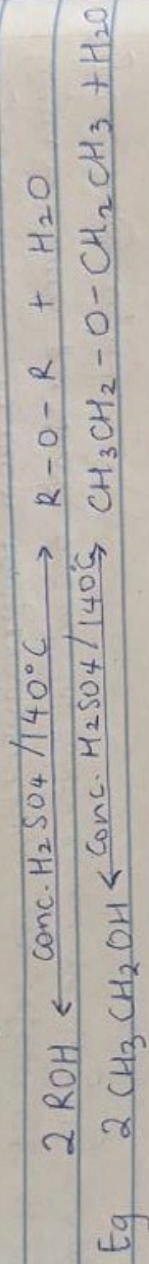 2 ROH <—conc. H2SO4/140°C—> R-O-R + H2O
Eg 2 CH3CH2OH <—conc. H2SO4/140°C—> CH3CH2-O-CH2CH3 + H2O